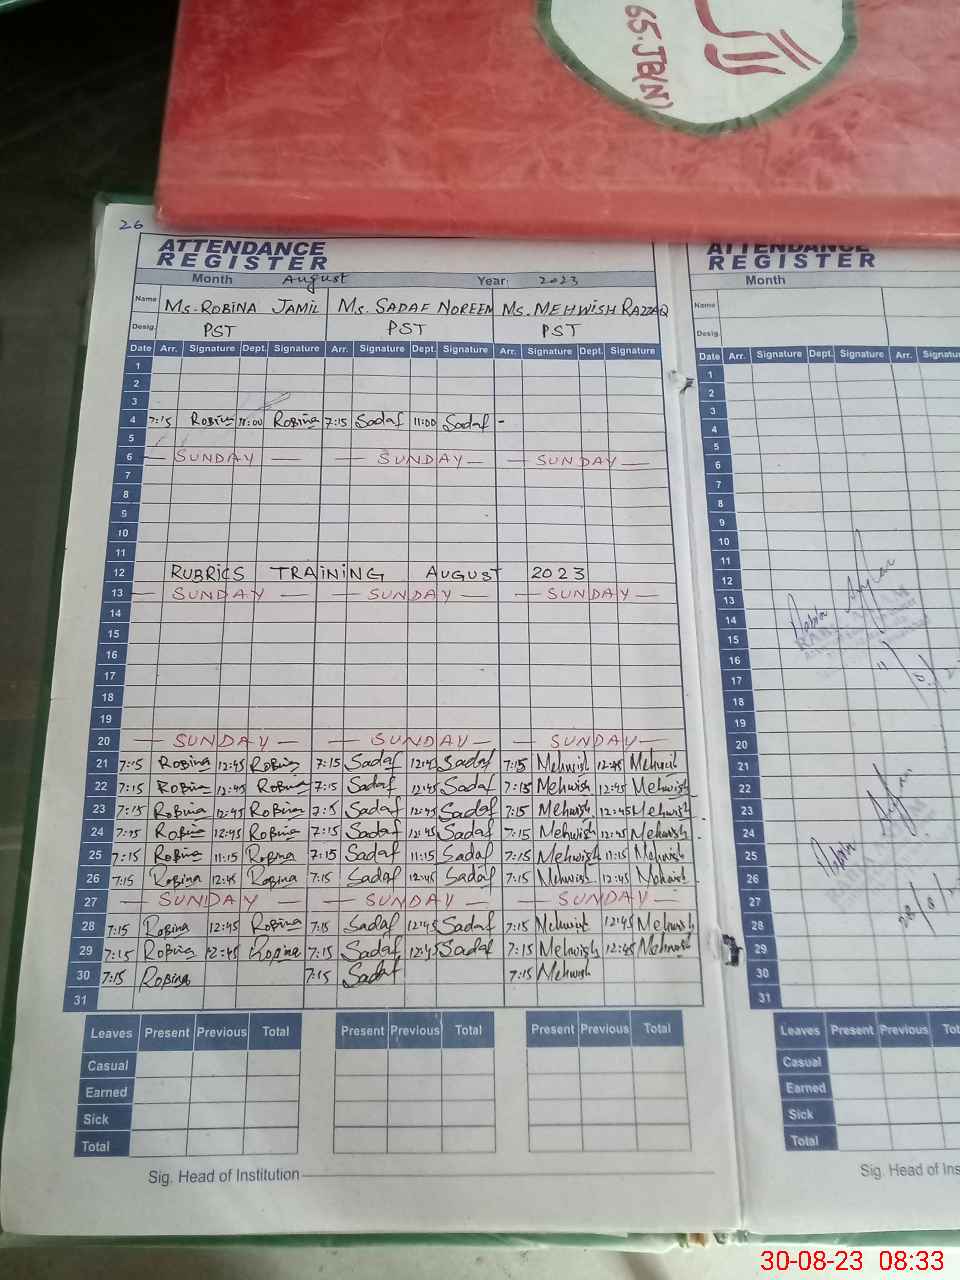 65.JB(N)
26
ATTENDANCE
REGISTER
Month August Year: 2023
Name Ms. ROBINA JAMIL Ms. SADAF NOREEN Ms. MEHWISH RAZZAQ
Desig. PST PST PST
Date Arr. Signature Dept. Signature Arr. Signature Dept. Signature Arr. Signature Dept. Signature
1
2
3
4 7:15 Robina 11:00 Robina 7:15 Sadaf 11:00 Sadaf -
5
6 — SUNDAY — — SUNDAY — — SUNDAY —
7
8
9
10
11
12 RUBRICS TRAINING AUGUST 2023
13 — SUNDAY — — SUNDAY — — SUNDAY —
14
15
16
17
18
19
20 — SUNDAY — — SUNDAY — — SUNDAY —
21 7:15 Robina 12:45 Robina 7:15 Sadaf 12:45 Sadaf 7:15 Mehwish 12:45 Mehwish
22 7:15 Robina 12:45 Robina 7:15 Sadaf 12:45 Sadaf 7:15 Mehwish 12:45 Mehwish
23 7:15 Robina 12:45 Robina 7:15 Sadaf 12:45 Sadaf 7:15 Mehwish 12:45 Mehwish
24 7:15 Robina 12:45 Robina 7:15 Sadaf 12:45 Sadaf 7:15 Mehwish 12:45 Mehwish
25 7:15 Robina 11:15 Robina 7:15 Sadaf 11:15 Sadaf 7:15 Mehwish 11:15 Mehwish
26 7:15 Robina 12:45 Robina 7:15 Sadaf 12:45 Sadaf 7:15 Mehwish 12:45 Mehwish
27 — SUNDAY — — SUNDAY — — SUNDAY —
28 7:15 Robina 12:45 Robina 7:15 Sadaf 12:45 Sadaf 7:15 Mehwish 12:45 Mehwish
29 7:15 Robina 12:45 Robina 7:15 Sadaf 12:45 Sadaf 7:15 Mehwish 12:45 Mehwish
30 7:15 Robina 7:15 Sadaf 7:15 Mehwish
31
Leaves Present Previous Total Present Previous Total Present Previous Total
Casual
Earned
Sick
Total
Sig. Head of Institution
ATTENDANCE
REGISTER
Month
Name
Desig.
Date Arr. Signature Dept. Signature Arr.
1
2
3
4
5
6
7
8
9
10
11
12
13
14
15
16
17
18
19
20
21
22
23
24
25
26
27
28
29
30
31
Leaves Present Previous
Casual
Earned
Sick
Total
Sig. Head of
30-08-23 08:33